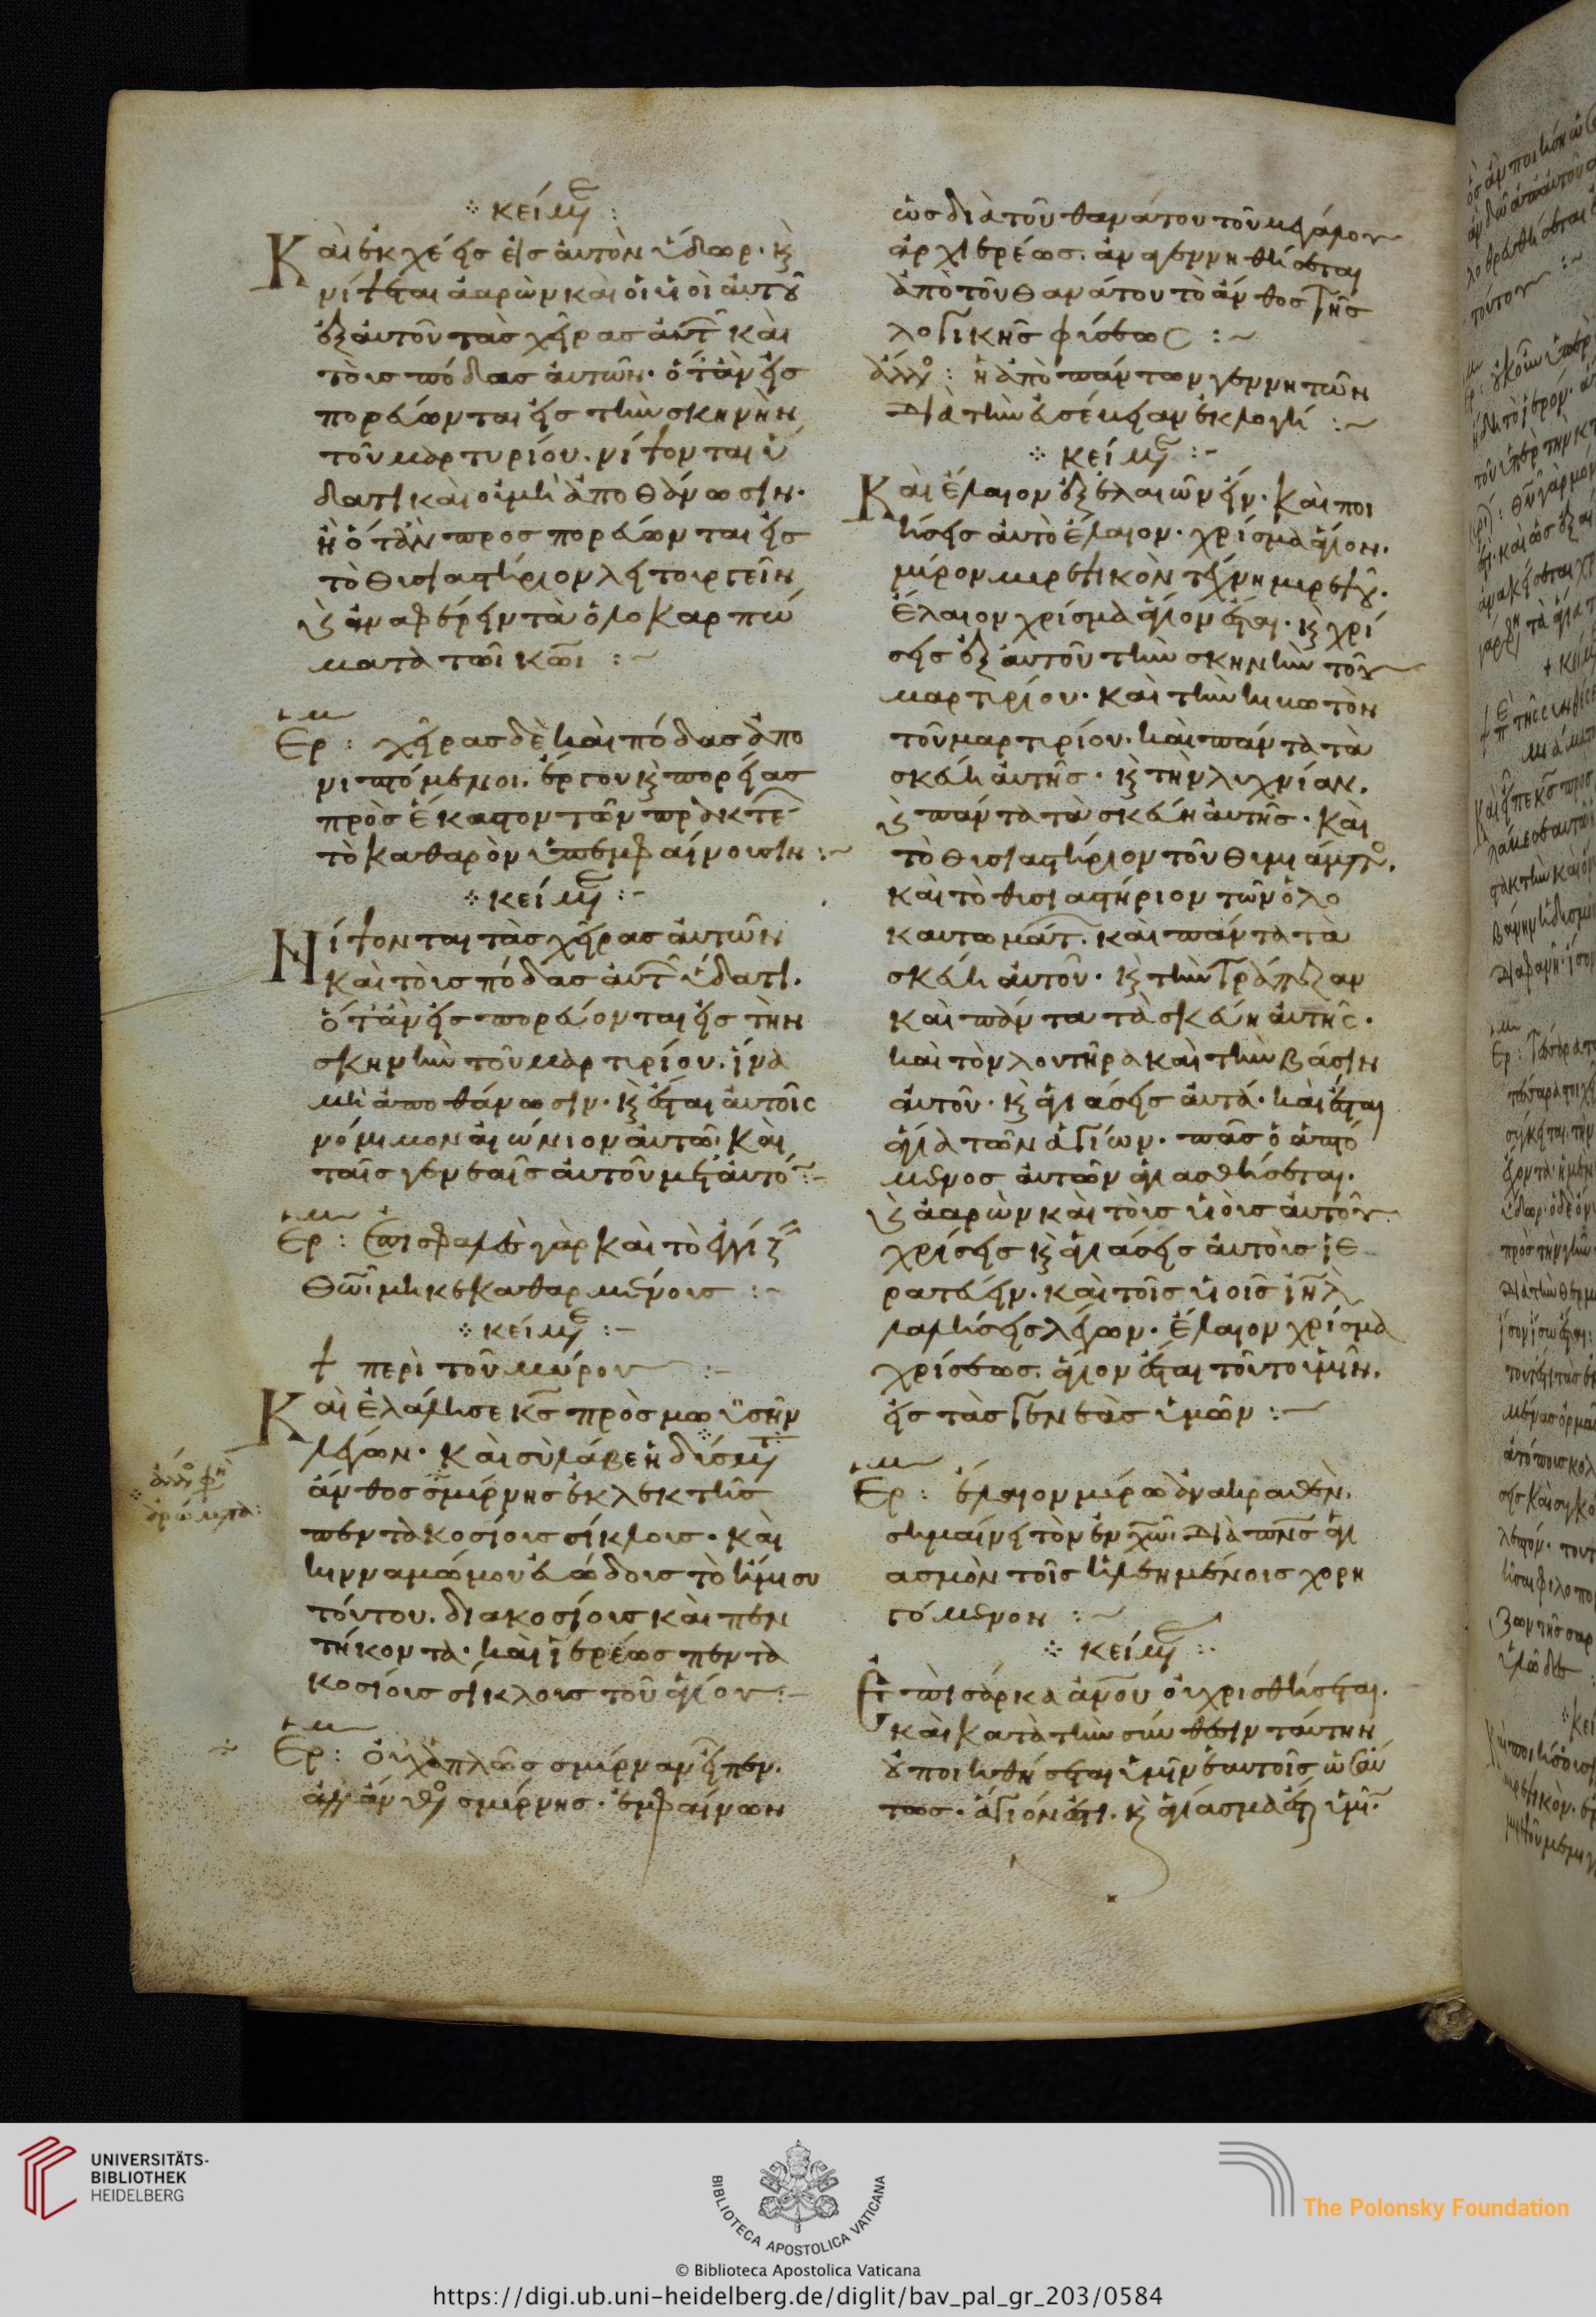 κείμε :
Καὶ ἐκχέεις εἰς ἀυτὸν ὕδωρ. κ
νίψεται ἀαρὼν καὶ ὁι ὑιοὶ ἀυτοῦ
ἐξ ἀυτοῦ τὰς χεῖρας ἀυτ καὶ
τοὶς πόδας ἀυτῶν. ὅταν εἰσ
πορέυωνται εἰς τὴν σκηνὴν
τοῦ μαρτυρίου. νίψονται ὕ
δατι καὶ οὐμὴ ἀποθάνωσιν.
ἢ ὅταν προσπορέυωνται εἰς
τὸ θισιαστήριον λειτουργεῖν
κ ἀναφέρειν τὰ ὁλοκαρπώ
ματα τῶι κωι : ~
Ερ : χεῖρας δὲ καὶ πόδας ἀπο
νιπτόμενοι. ἔργου κ πορείας
πρὸς ἕκαστον τῶν πρακτέ
τὸ καθαρὸν ὑπεμφαίνουσιν : ~
κείμε : -
Νίψονται τὰς χεῖρας ἀυτῶν
καὶ τοὶς πόδας ἀυτ ὕδατι.
ὅταν εἰσπορέυονται εἰς τὴν
σκηνὴν τοῦ μαρτιρίου. ἵνα
μὴ ἀποθάνωσιν. κ ἔσται ἀυτοῖς
νόμιμον ἀιώνιον ἀυτῶ. καὶ
ταῖς γενεαῖς ἀυτοῦ μετ ἀυτό : -
Ερ : ἐπισφαλὲ γὰρ καὶ τὸ ἐγγίζ
θῶι μὴ κεκαθαρμένοις : -
κείμε : -
† περὶ τοῦ μύρου : -
Καὶ ἐλάλησε κς πρὸς μωϋσῆν
λέγων. καὶ σὺ λάβε ἡδύσμ
ἄνθος σμύρνης ἐκλεκτῆς
πεντακοσίοις σίκλοις. καὶ
κινναμώμου ἐυώδοις τὸ ἥμισυ
τόυτου. διακοσίοις καὶ πεν
τήκοντα. καὶ ἱερέως πεντα
κοσίοις σίκλοις τοῦ ἁγίου : -
Ερ : ὀυχ ἁπλῶς σμύρναν εἶπεν.
ἀλλ ἄνθο σμύρνης. ἐμφαίνων
ὡς διὰ τοῦ θανάτου τοῦ μεγάλου
ἀρχιερέως. ἀναγεννηθήσεται
ἀπὸ τοῦ θανάτου τὸ ἄνθος τῆς
λογικῆς φύσεως : ~
ἄλλο : ἡ ἀπὸ πάντων γεννητῶν
διὰ τὴν ἀσέβειαν ἐκλογή : ~
κείμε : -
Καὶ ἔλαιον ἐξ ἐλαιῶν εἵν. καὶ ποι
ήσεις ἀυτὸ ἔλαιον. χρίσμα ἅγιον.
μύρον μυρεψικὸν τέχνη μυρεψοῦ.
ἔλαιον χρίσμα ἅγιον ἔσται. κ χρί
σεις ἐξ ἀυτοῦ τὴν σκηνὴν τοῦ
μαρτιρίου. καὶ τὴν κιωτὸν
τοῦ μαρτιρίου. καὶ πάντα τὰ
σκέυη ἀυτῆς. κ τὴν λυχνίαν.
κ πάντα τὰ σκέυη ἀυτῆς. καὶ
τὸ θισιαστήριον τοῦ θιμιάματο.
καὶ τὸ θισιαστήριον τῶν ὁλο
καυτωμάτ. καὶ πάντα τὰ
σκέυη ἀυτοῦ. κ τὴν τράπεζαν
καὶ πάντα τὰ σκέυη ἀυτῆς.
καὶ τὸν λουτῆρα καὶ τὴν βάσιν
ἀυτοῦ. κ ἁγιάσεις ἀυτά. καὶ ἔσται
ἅγια τῶν ἁγίων. πᾶς ὁ ἁπτό
μενος ἀυτῶν ἁγιασθήσεται.
κ ἀαρὼν καὶ τοὶς ὑιοὶς ἀυτοῦ
χρίσεις κ ἁγιάσεις ἀυτοὶς ἱε
ρατέυειν. καὶ τοῖς ὑιοῖς ιηλ
λαλήσεις λέγων. ἔλαιον χρίσμα
χρίσεως. ἅγιον ἔσται τοῦτο ὑμῖν.
εἰς τὰς γενεὰς ὑμῶν : -
Ερ : ἔλαιον μύρω ἀνακραθὲν.
σημαίνει τὸν ἐν χωι διὰ πνς ἁγι
ασμὸν τοῖς ἠλεημένοις χορη
γόμενον : ~
κείμε : -
Ἐπὶ σάρκα ἀνου ὀυ χρισθήσεται.
καὶ κατὰ τὴν σύνθεσιν ταύτην
οὐ ποιηθήσεται ὑμῖν ἑαυτοῖς ὡσάυ
τως. ἅγιόν ἐστι. κ ἁγίασμα ἔσται ὑμῖ.
UNIVERSITÄTS-
BIBLIOTHEK
HEIDELBERG
BIBLIOTECA APOSTOLICA VATICANA
The Polonsky Foundation
© Biblioteca Apostolica Vaticana
https://digi.ub.uni-heidelberg.de/diglit/bav_pal_gr_203/0584